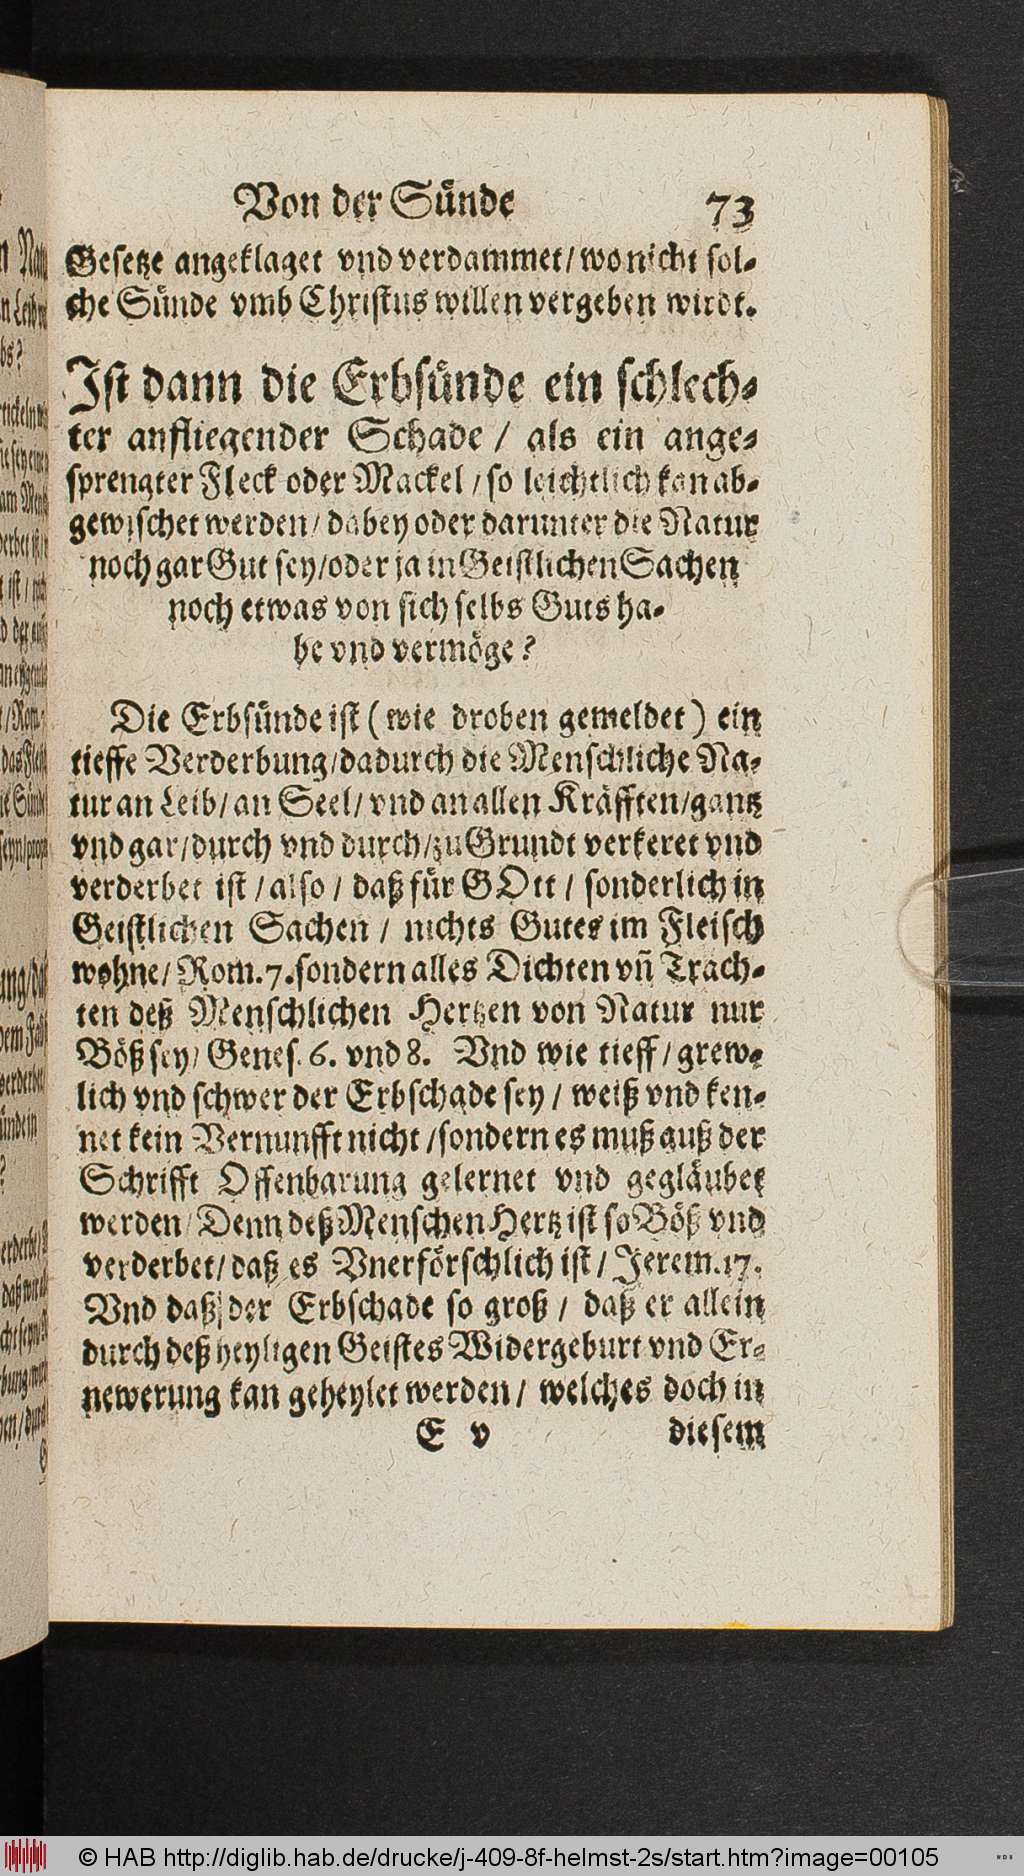 Von der Sünde 73
Gesetze angeklaget vnd verdammet/ wo nicht sol-
che Sünde vmb Christus willen vergeben wirdt.
Ist dann die Erbsünde ein schlech-
ter anfliegender Schade / als ein ange-
sprengter Fleck oder Mackel / so leichtlich kan ab-
gewischet werden/ dabey oder darunter die Natur
noch gar Gut sey/ oder ja in Geistlichen Sachen
noch etwas von sich selbs Guts ha-
be vnd vermöge?
Die Erbsünde ist (wie droben gemeldet) ein
tieffe Verderbung/ dadurch die Menschliche Na-
tur an Leib/ an Seel/ vnd an allen Kräfften/ gantz
vnd gar/ durch vnd durch/ zu Grundt verkeret vnd
verderbet ist / also / daß für GOtt / sonderlich in
Geistlichen Sachen / nichts Gutes im Fleisch
wohne/ Rom. 7. sondern alles Dichten vñ Trach-
ten deß Menschlichen Hertzen von Natur nur
Böß sey/ Genes. 6. vnd 8. Vnd wie tieff / grew-
lich vnd schwer der Erbschade sey / weiß vnd ken-
net kein Vernunfft nicht / sondern es muß auß der
Schrifft Offenbarung gelernet vnd gegläubet
werden/ Denn deß Menschen Hertz ist so Böß vnd
verderbet/ daß es Vnerförschlich ist / Jerem. 17.
Vnd daß der Erbschade so groß / daß er allein
durch deß heyligen Geistes Widergeburt vnd Er-
newerung kan geheylet werden / welches doch in
E v diesem
© HAB http://diglib.hab.de/drucke/j-409-8f-helmst-2s/start.htm?image=00105